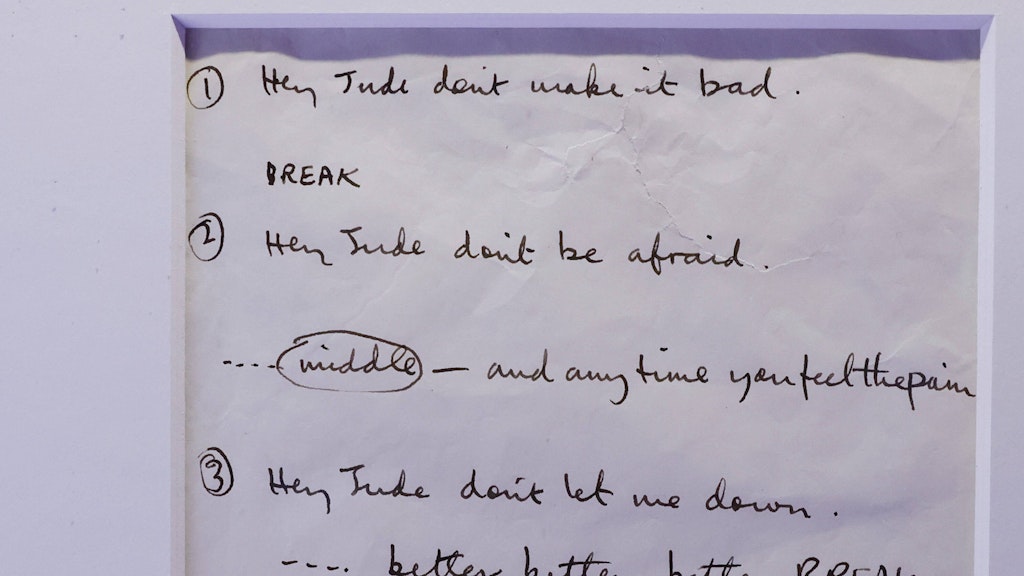 ① Hey Jude don't make it bad.
BREAK
② Hey Jude don't be afraid.
---- middle — and any time you feel the pain
③ Hey Jude don't let me down.
---- better better better BREAK